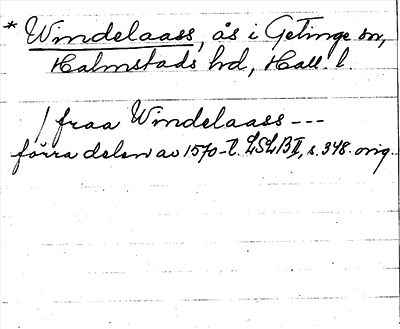 * Windelaass, ås i Getinge sn,
Halmstads hd, Hall. l.
/ fraa Windelaass ---
förra delen av 1570-t. LSLB II, s. 348. orig.